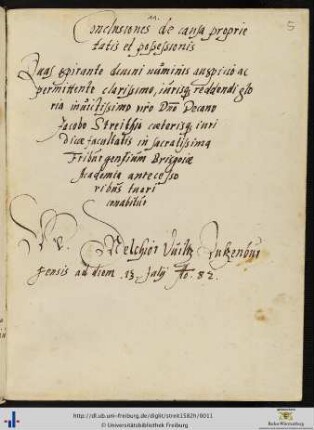 Conclusiones de causa proprie
tatis et possessionis
Quas spirante divini numinis auspicio ac
permittente clarissimo, iurisq; reddendi glo
ria invictissimo viro Dno Decano
Jacobo Streithio cæterisq; iuri
dicæ facultatis in sacratissima
Friburgensium Brisgoiæ
Academia antecesso
ribus tueri
conabitur
Melchior
gensis ad diem .13. Julij Ao. 82.
5
http://dl.ub.uni-freiburg.de/diglit/streit1582h/0011
© Universitätsbibliothek Freiburg
Baden-Württemberg